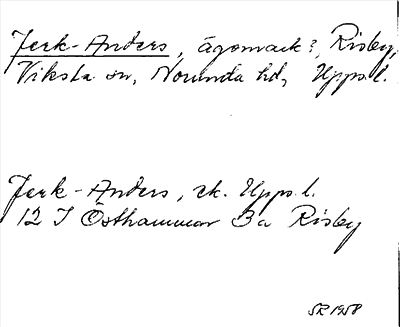 Jerk-Anders, ägomark?, Risby,
Viksta sn, Norunda hd, Upps.l.
Jerk-Anders, ek. Upps.l.
12 I Östhammar 3a Risby
SR 1958